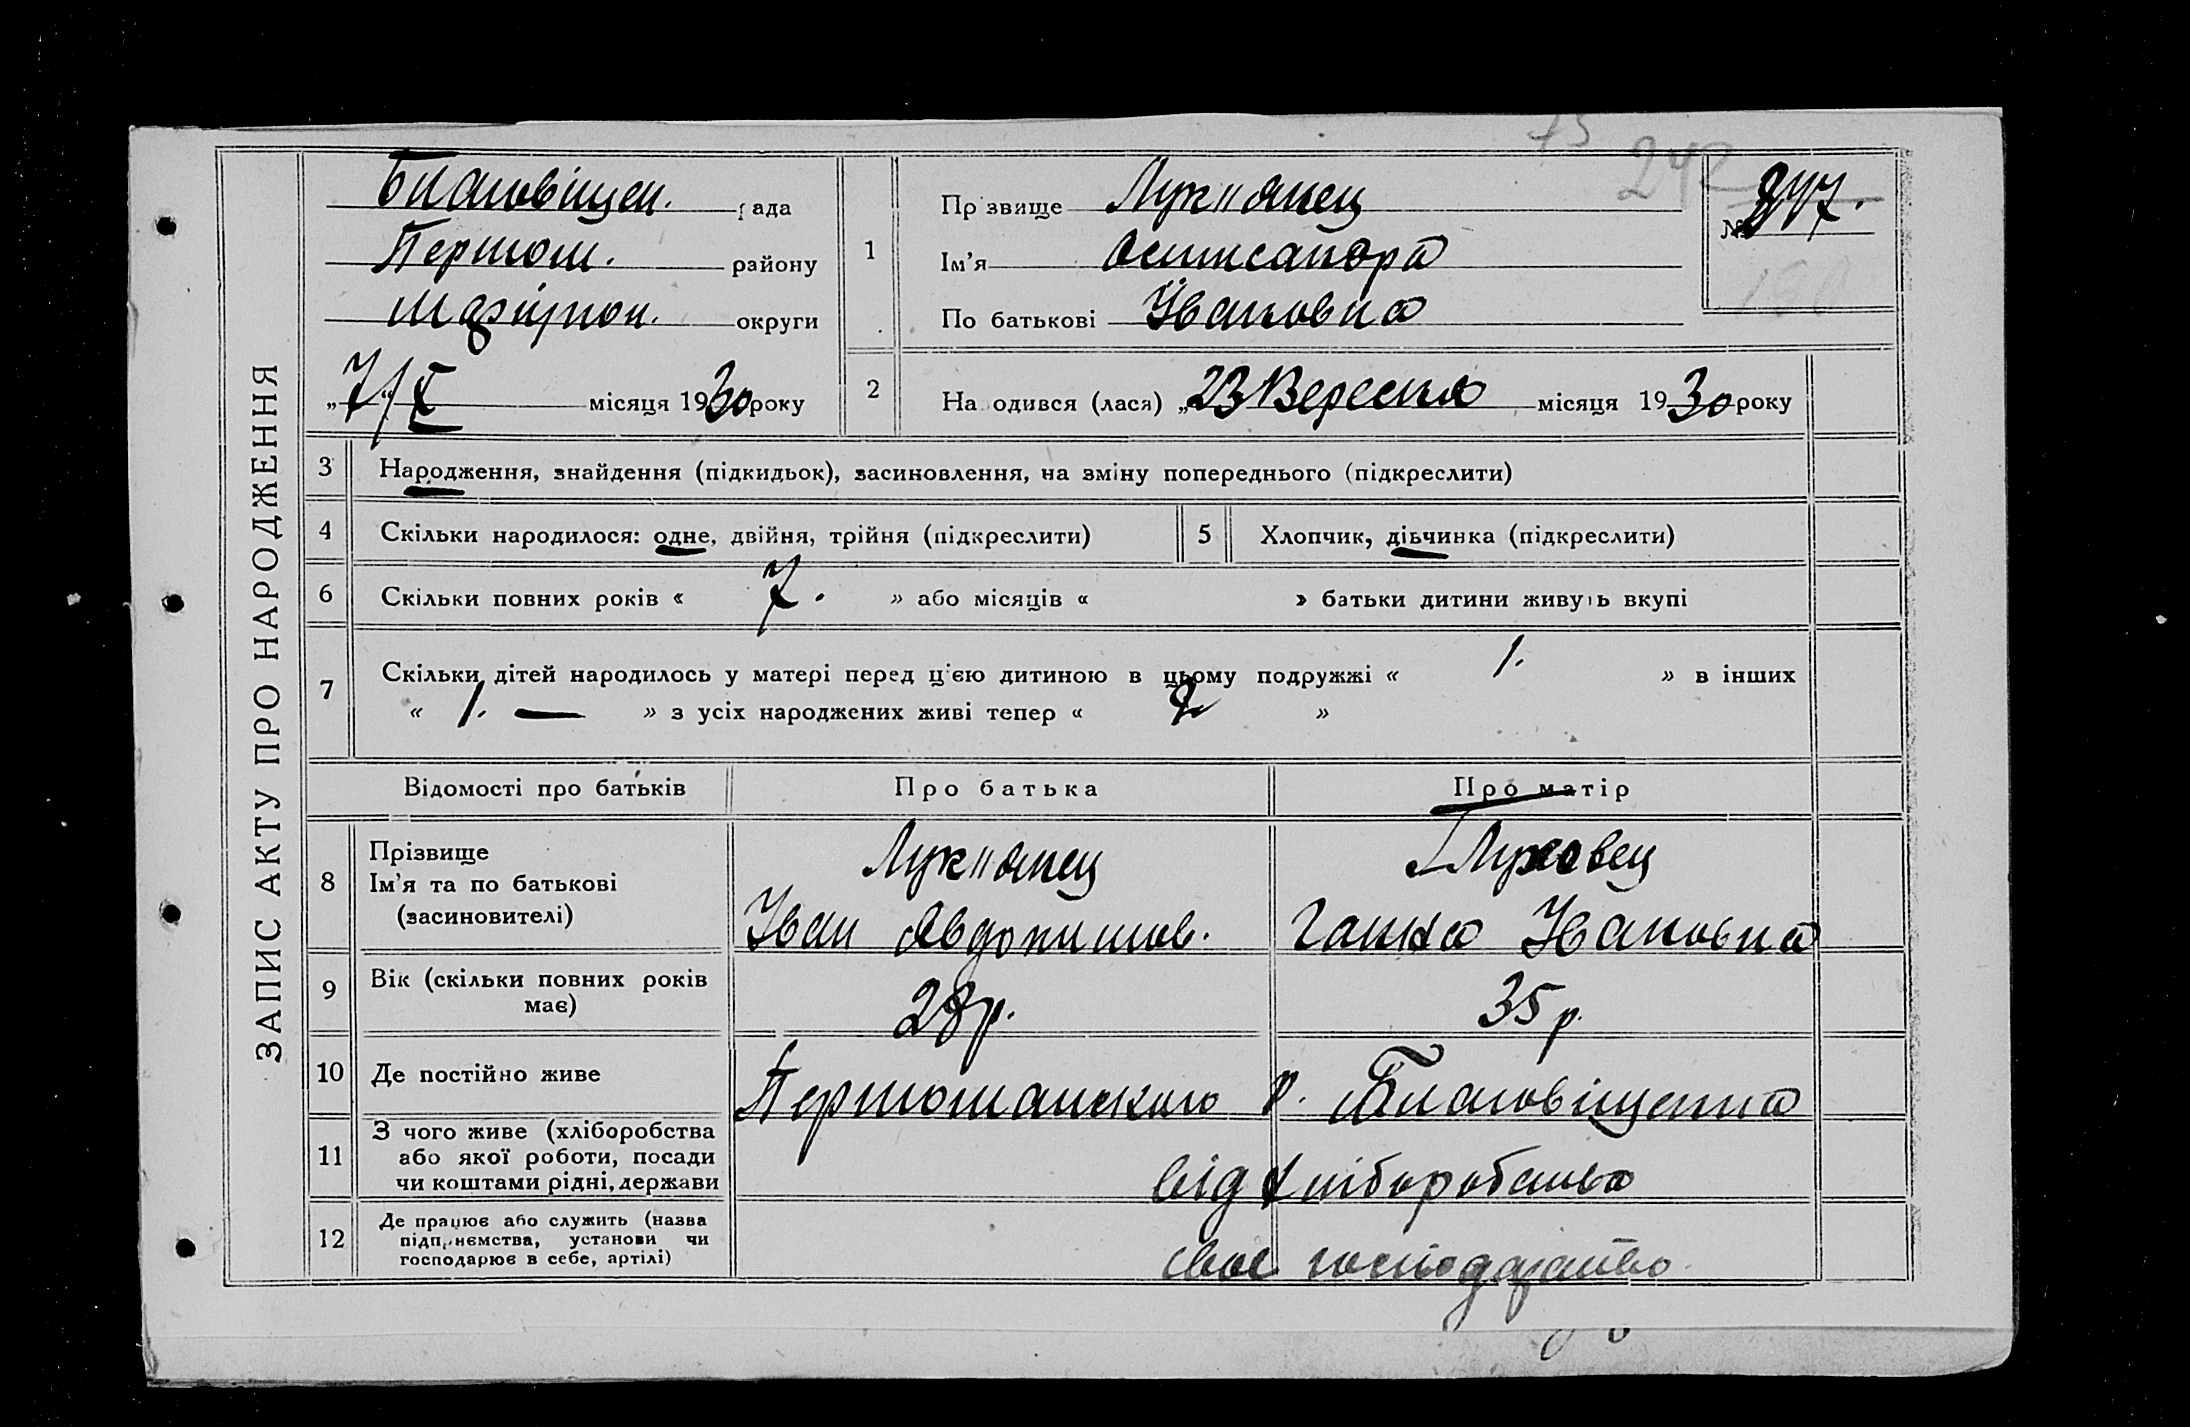 ЗАПИС АКТУ ПРО НАРОДЖЕННЯ
75 242
Благовіщен. рада
Першом. району
округи
„7“/X місяця 1930 року
1
Прізвище Лук'янец
Ім'я Олександра
По батькові Івановна
№ 847.
2
Народився (лася) „23 Вересня місяця 1930 року
3 Народження, знайдення (підкидьок), засиновлення, на зміну попереднього (підкреслити)
4 Скільки народилося: одне, двійня, трійня (підкреслити)
5 Хлопчик, дівчинка (підкреслити)
6 Скільки повних років « 7. » або місяців « » батьки дитини живуть вкупі
7 Скільки дітей народилось у матері перед цією дитиною в цьому подружжі « 1. » в інших
« 1. — » з усіх народжених живі тепер « 2 »
Відомості про батьків Про батька Про матір
8 Прізвище
Ім'я та по батькові
(засиновителі)
Лук'янец
Іван Явдокимов.
Глуховец
Ганна Івановна
9 Вік (скільки повних років має)
28 р. 35 р.
10 Де постійно живе
Першотравенського р. Благовіщенка
11 З чого живе (хліборобства
або якої роботи, посади
чи коштами рідні, держави
від хліборобства
12 Де працює або служить (назва
підприємства, установи чи
господарює в себе, артілі)
своє господарство.